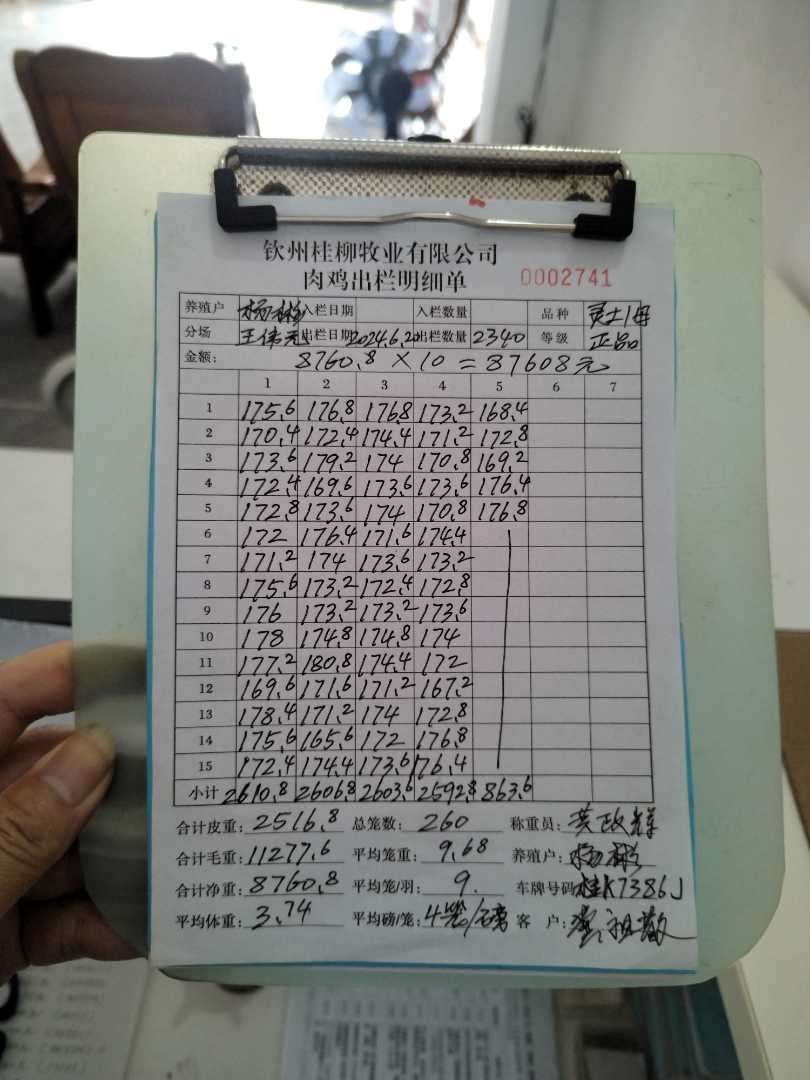 钦州桂柳牧业有限公司
肉鸡出栏明细单 0002741
养殖户 杨彬 入栏日期 入栏数量 品种 灵土1母
分场 王伟元 出栏日期 2024.6.20 出栏数量 2340 等级 正品
金额: 8760.8 × 10 = 87608元
1 2 3 4 5 6 7
1 175.6 176.8 176.8 173.2 168.4
2 170.4 172.4 174.4 171.2 172.8
3 173.6 179.2 174 170.8 169.2
4 172.4 169.6 173.6 173.6 176.4
5 172.8 173.6 174 170.8 176.8
6 172 176.4 171.6 174.4
7 171.2 174 173.6 173.2
8 175.6 173.2 172.4 172.8
9 176 173.2 173.2 173.6
10 178 174.8 174.8 174
11 177.2 180.8 174.4 172
12 169.6 171.6 171.2 167.2
13 178.4 171.2 174 172.8
14 175.6 165.6 172 176.8
15 172.4 174.4 173.6 176.4
小计 2610.8 2606.8 2603.6 2592.8 863.6
合计皮重: 2516.8 总笼数: 260 称重员: 黄政辉
合计毛重: 11277.6 平均笼重: 9.68 养殖户: 杨彬
合计净重: 8760.8 平均笼/羽: 9. 车牌号码: 桂K7386J
平均体重: 3.74 平均磅/笼: 4笼/磅 客 户: